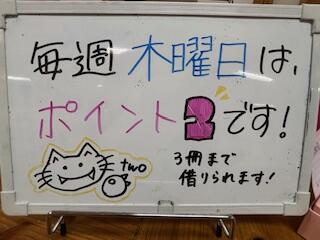 毎週 木曜日は、
ポイント2です!
two
3冊まで
借りられます!